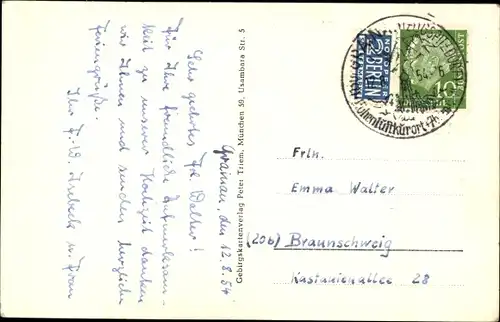 Grainau, den 12.8.54
Sehr geehrtes Frl. Walter!
Für Ihre freundliche Aufmerksam-
keit zu unserer Hochzeit danken
wir Ihnen und senden herzliche
Feriengrüße.
Ihr F.-W. u. Frau
Gebirgskartenverlag Peter Triem, München 59, Usambara Str. 5
NOTOPFER
2 BERLIN
STEUERMARKE
10
Höhenluftkurort
Frln.
Emma Walter
(20b) Braunschweig
Kastanienallee 28